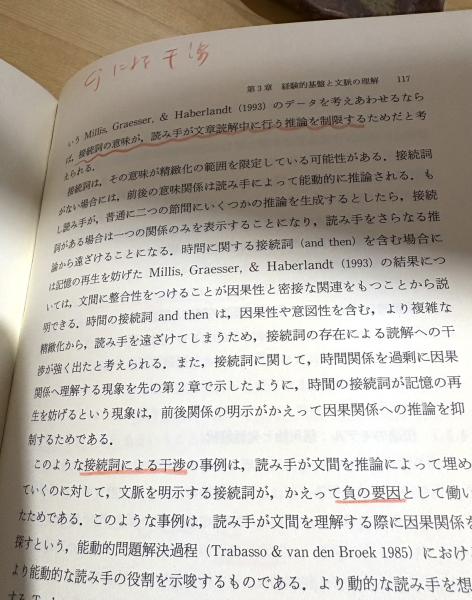 cjによる干渉
第3章　経験的基盤と文脈の理解　117
いう Millis, Graesser, & Haberlandt (1993) のデータを考えあわせるなら
ば，接続詞の意味が，読み手が文章読解中に行う推論を制限するためだと考
えられる．
接続詞は，その意味が精緻化の範囲を限定している可能性がある．接続詞
がない場合には，前後の意味関係は読み手によって能動的に推論される．も
し読み手が，普通に二つの節間にいくつかの推論を生成するとしたら，接続
詞がある場合は一つの関係のみを表示することになり，読み手をさらなる推
論から遠ざけることになる．時間に関する接続詞 (and then) を含む場合に
は記憶の再生を妨げた Millis, Graesser, & Haberlandt (1993) の結果につ
いては，文間に整合性をつけることが因果性と密接な関連をもつことから説
明できる．時間の接続詞 and then は，因果性や意図性を含む，より複雑な
精緻化から，読み手を遠ざけてしまうため，接続詞の存在による読解への干
渉が強く出たと考えられる．また，接続詞に関して，時間関係を過剰に因果
関係へ理解する現象を先の第2章で示したように，時間の接続詞が記憶の再
生を妨げるという現象は，前後関係の明示がかえって因果関係への推論を抑
制するためである．
このような接続詞による干渉の事例は，読み手が文間を推論によって埋め
ていくのに対して，文脈を明示する接続詞が，かえって負の要因として働い
たためである．このような事例は，読み手が文間を理解する際に因果関係を
探すという，能動的問題解決過程 (Trabasso & van den Broek 1985) におけ
より能動的な読み手の役割を示唆するものである．より動的な読み手を想